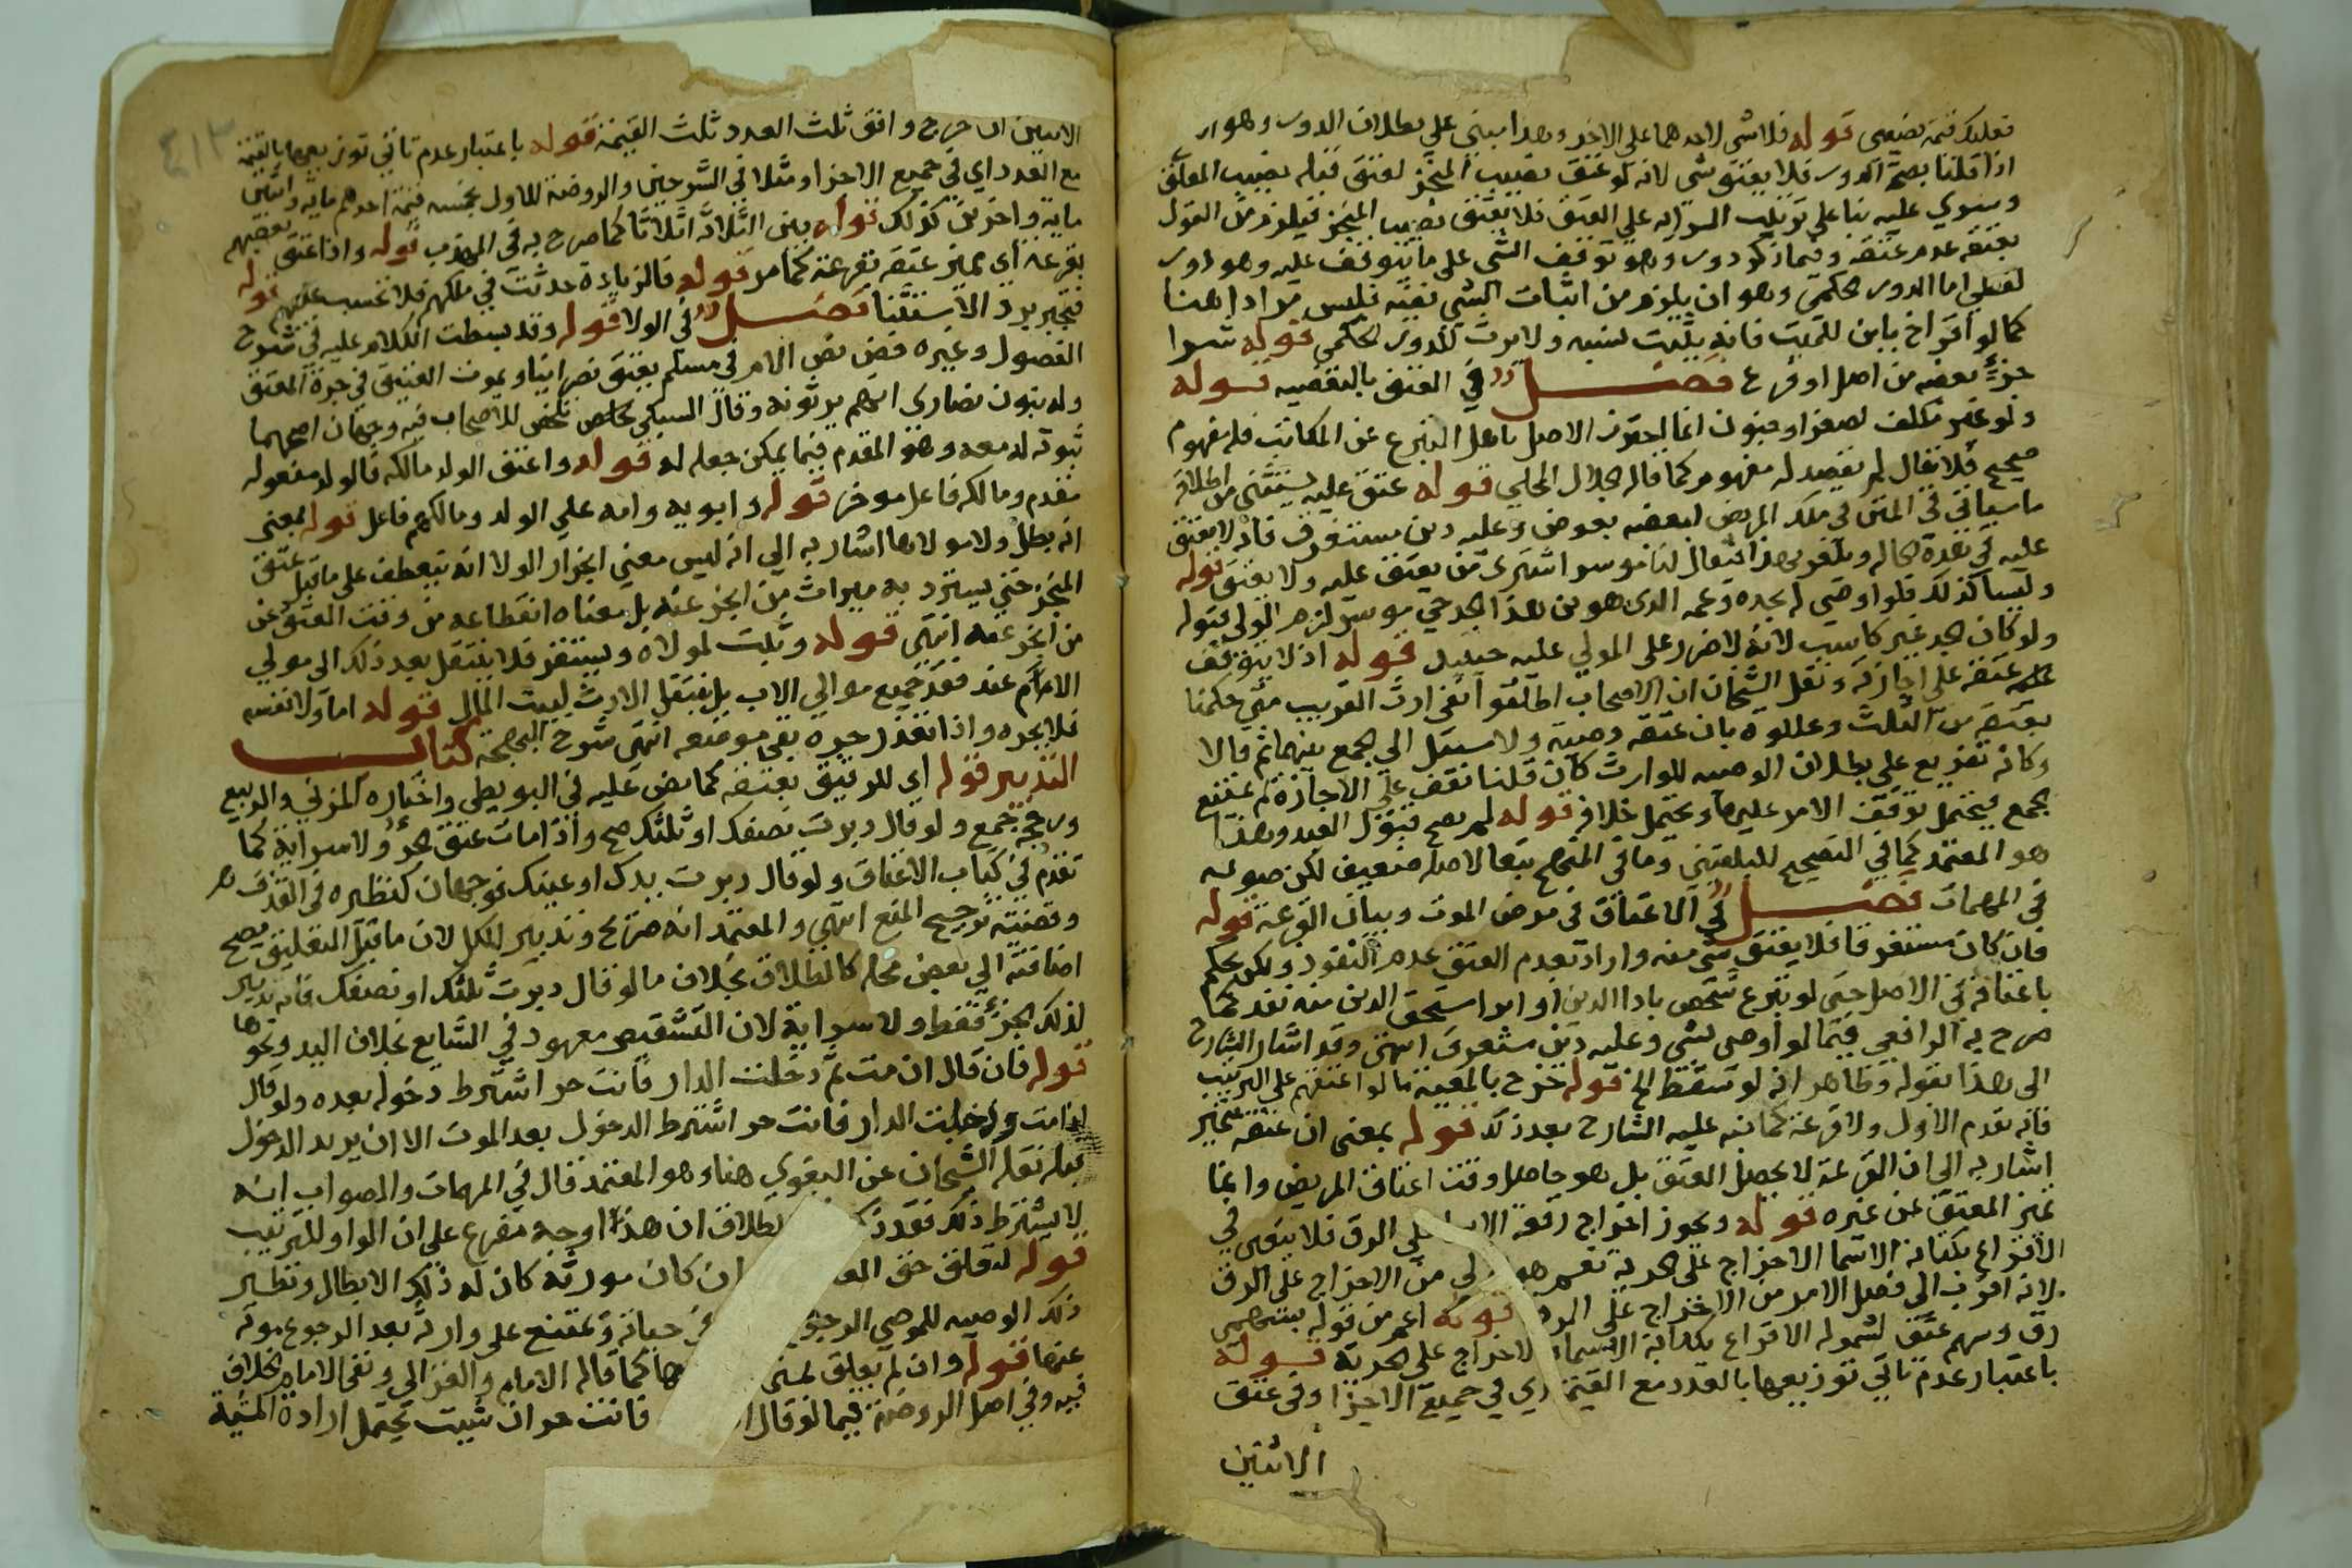 فعليك قيمة نصيبي قوله فلا شي لاحدهما على الاخر وهذا مبني علي بطلان الدور وهو
اذا قلنا بصحة الدور فلا يعتق شي لانه لو عتق نصيب المنجز لعتق قبله نصيب المعلق
وسري عليه بنا على ترتيب السراية على العتق فلا يعتق نصيب المنجز فيلزم من القول
بعتقه عدم عتقه وفيما ذكر دور وهو توقف الشي على ما يتوقف عليه وهو دور
لفظي اما الدور الحكمي وهو ان يلزم من اثبات الشي نفيه فليس مرادا هنا
كما لو اقر اخ بابن للميت فانه يثبت نسبه ولا يرث للدور الحكمي قوله شرا
جزء بعضه من اصل او فرع فصل في العتق بالبعضية قوله
ولو غير مكلف لصغر او جنون انما احترز الاصل باهل التبرع عن المكاتب فله مفهوم
صحيح فلا يقال لم يقصد له مفهوم كما قاله الجلال المحلي قوله عتق عليه يستثنى من اطلاقه
ما سياتي في المتن في ملك المريض لبعضه بعوض وعليه دين مستغرق فانه لا يعتق
عليه في هذه الحاله ويلغز بهذا فيقال لنا موسر اشترى من يعتق عليه ولا يعتق قوله
وليسا كذلك فلو اوصى له بجده وعمه الذي هو بن هذا الجد حي موسر لزم الولي قبوله
ولو كان الجد غير كاسب لانه لا ضرر على المولي عليه حينئذ قوله اذ لا يتوقف
عتقه على اجازته ونقل الشيخان ان الاصحاب اطلقوا نفي ارث القريب متى حكمنا
بعتقه من الثلث وعللوه بان عتقه وصية ولا سبيل الي الجمع بينهما ثم قالا
وكانه تفريع على بطلان الوصيه للوارث كان قلنا تقف على الاجازة لم يمتنع
الجمع فيحتمل توقف الامر عليها ويحتمل خلافه قوله لم يصح قبول العبد وهذا
هو المعتمد كما في التصحيح للبلقيني وما في المنهج تبعا لاصله ضعيف لكن صوبه
في المهمات فصل في الاعتاق في مرض الموت وبيان القرعة قوله
فان كان مستغرقا فلا يعتق شي منه واراد بعدم العتق عدم النفوذ ولكن يحكم
باعتاقه في الاصل حتى لو تبرع شخص باداء الدين او ابرا مستحق الدين منه نفذ كما
صرح به الرافعي فيما لو اوصى بشي وعليه دين مستغرق انتهى وقد اشار الشارح
الى هذا بقوله وظاهر انه لو سقط الخ قوله خرج بالمعية ما لو اعتقهم على الترتيب
فانه يقدم الاول ولا قرعة كما نبه عليه الشارح بعد ذلك قوله بمعنى ان عتقه يتميز
اشار به الى ان القرعة لا تحصل العتق بل هو حاصل وقت اعتاق المريض وانما
تميز المعتق عن غيره قوله ويجوز اخراج رقعة علي الرق فلا يتعين في
الاقراع بكتابة الاسما الاخراج على الحرية نعم هو من الاخراج على الرق
لانه اقرب الى فصل الامر من الاخراج على الرق قوله اعم من قوله بسهمي
رق وسهم عتق لشموله الاقراع بكتابة الاسما الاخراج على الحرية قوله
باعتبار عدم تاتي توزيعها بالعدد مع القيمة اي في جميع الاجزا وفي عتق
الاثنين
الاثنين ان خرج وافق ثلث العدد ثلث القيمة قوله باعتبار عدم تاتي توزيعها بالقيمة
مع العدد اي في جميع الاجزا ومثلا في الشرحين والروضة للاول بخمسة قيمة احدهم مائة واثنين
مائة واخرين كذلك قوله بين الثلاثة اثلاثا كما صرح به في المهذب قوله واذا عتق بعضهم
بقرعة اي تميز عتقه بقرعة كما مر قوله فالزيادة حدثت في ملكهم فلا تحسب عليهم قوله
فيجبر برد الاستثنا فصل في الولا قوله وقد بسطت الكلام عليه في شرح
الفصول وغيره فمن نص الام في مسلم يعتق نصرانيا ويموت العتيق في حياة المعتق
وله بنون نصارى انهم يرثونه وقال السبكي تلخص للاصحاب فيه وجهان اصحهما
ثبوته له معه وهو المقدم فيما يمكن جعله له قوله واعتق الولد مالكه فالولد مفعول
مقدم ومالكه فاعل موخر قوله وابويه وامه علي الولد ومالكهم فاعل قوله بمعنى
انه بطل ولا مولاها اشار به الي انه ليس معني انجرار الولا انه ينعطف على ما قبل عتق
المنجز حتي يسترد به ميراث من انجر عنه بل معناه انقطاعه من وقت العتق عن
من انجر عنه انتهى قوله وثبت لمولاه ويستقر فلا ينتقل بعد ذلك الى موالي
الام عند فقد جميع موالي الاب بل ينتقل الارث لبيت المال قوله اما ولا نفسه
فلا يجره واذا تعذر جره بقي موضعه انتهى شرح البهجة كتاب
التدبير قوله اي للرقيق بعتقه كما نص عليه في البويطي واختاره المزني والربيع
ورجحه جمع ولو قال دبرت نصفك او ثلثك صح واذا مات عتق الجزؤ ولا سراية كما
تقدم في كتاب الاعتاق ولو قال دبرت يدك او عينك فوجهان كنظيره في القذف
وقضيته ترجيح المنع انتهى والمعتمد انه صريح وتدبير للكل لان ما قبل التعليق يصح
اضافته الي بعض محله كالطلاق بخلاف ما لو قال دبرت ثلثك او نصفك فانه تدبير
لذلك الجزء فقط ولا سراية لان التشقيص معهود في الشايع بخلاف اليد ونحوها
قوله فان قال ان مت ثم دخلت الدار فانت حر اشترط دخوله بعده ولو قال
اذا مت ودخلت الدار فانت حر اشترط الدخول بعد الموت الا ان يريد الدخول
قبله نقله الشيخان عن البغوي هنا وهو المعتمد قال في المهمات والصواب انه
لا يشترط ذلك فقد ذكر الطلاق ان هذا اوجه مفرع على ان الواو للترتيب
قوله لتعلق حق ان كان مورثه كان له ذلك الابطال ونظير
ذلك الوصيه للموصي الرجوع حياته ويمتنع على وارثه بعد الرجوع موته
عنها قوله وان لم يعلق بمتى كما قاله الامام والغزالي ونفى الامام الخلاف
فيه وفي اصل الروضة فيما لو قال فانت حر ان شئت يحتمل ارادة المشية